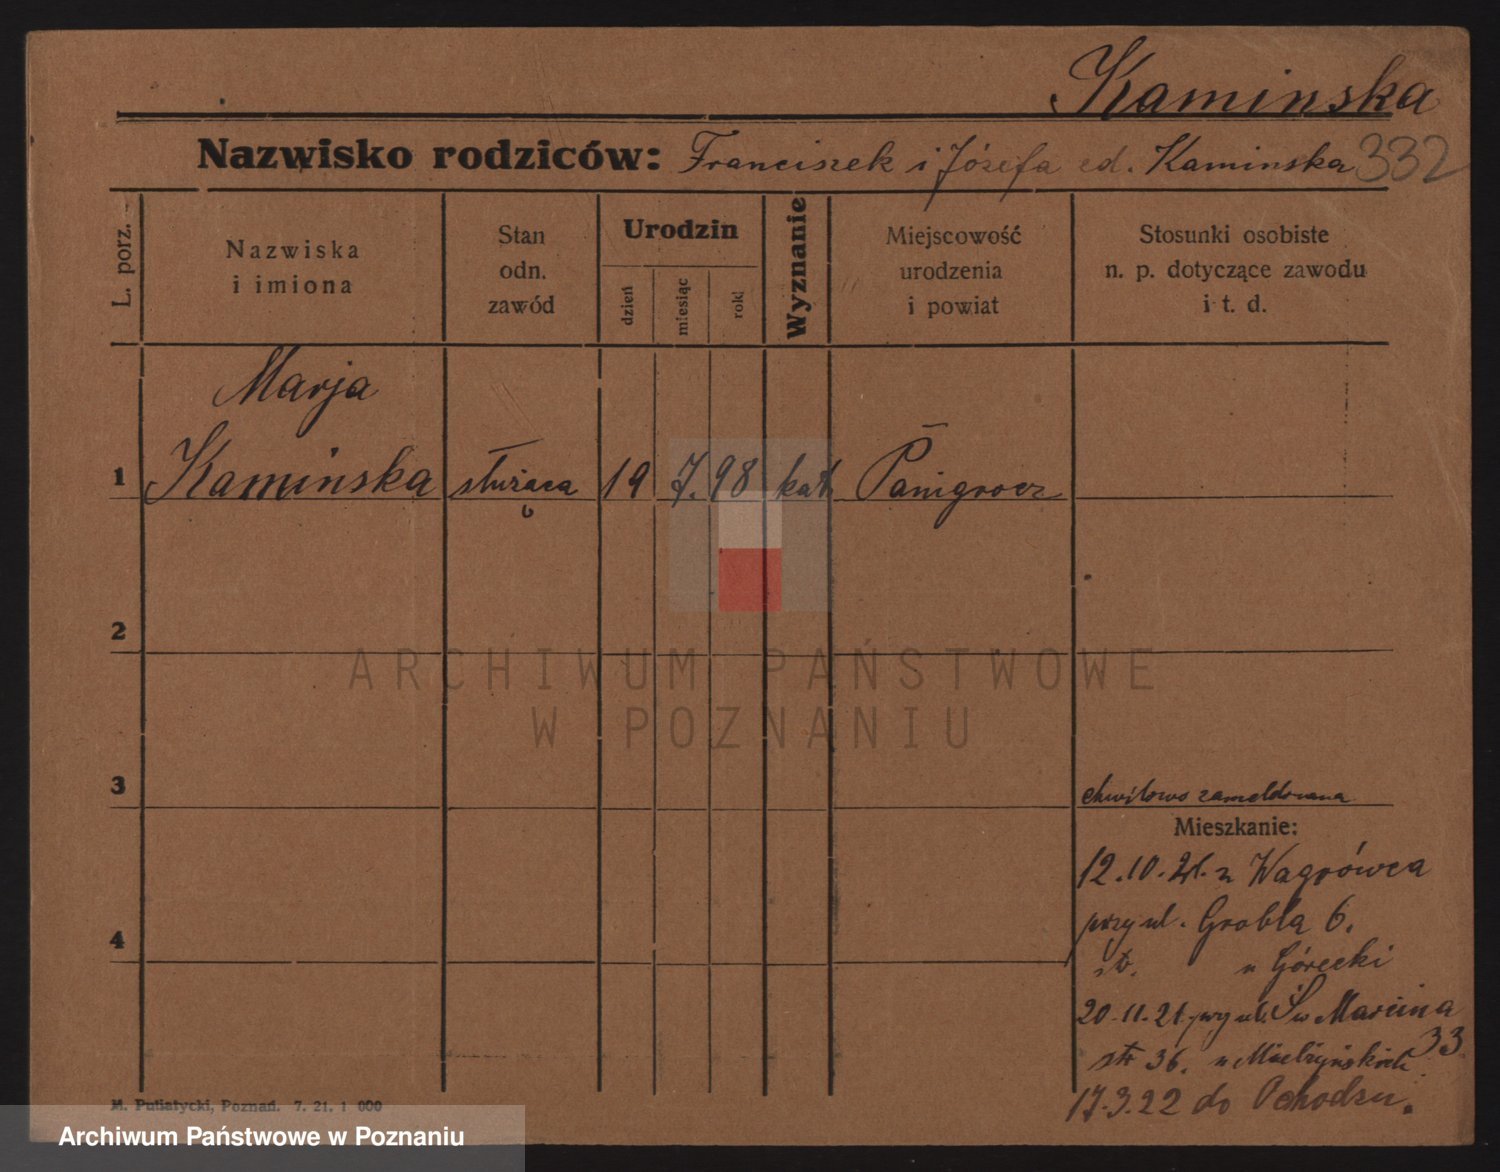 Kaminska
Nazwisko rodziców: Franciszek i Józefa Kaminska 332
L. porz.
Nazwiska
i imiona
Stan
odn.
zawód
Urodzin
dzień
miesiąc
rok
Wyznanie
Miejscowość
urodzenia
i powiat
Stosunki osobiste
n. p. dotyczące zawodu
i t. d.
Marja
1 Kaminska służąca 19 7. 98 kat. Panigrocz
2
3
chwilowo zameldowana
Mieszkanie:
12.10.21. z Wągrówca
przy ul. Grobla 6.
4
str. u Górecki
20.11.21. przy ul. Św Marcina
33
str 36. u Mielżyńskich
17.3.22 do
M. Putiatycki, Poznań. 7. 21. 1 000
ARCHIWUM PAŃSTWOWE
W POZNANIU
Archiwum Państwowe w Poznaniu